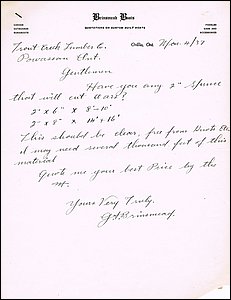 Brinsmead Boats
Orillia, Ont. Nov. 4/37
Trout Creek Lumber Co.
Powassan Ont.
Gentlemen
Have you any 2" Spruce
that will cut oars?
2" x 6" x 8'-10'
2" x 8" x 14' + 16'
This should be clear, free from Knots etc.
I may need several thousand feet of this
material
Quote me your best Price by the
M.
Yours Very Truly.
G Brinsmead.